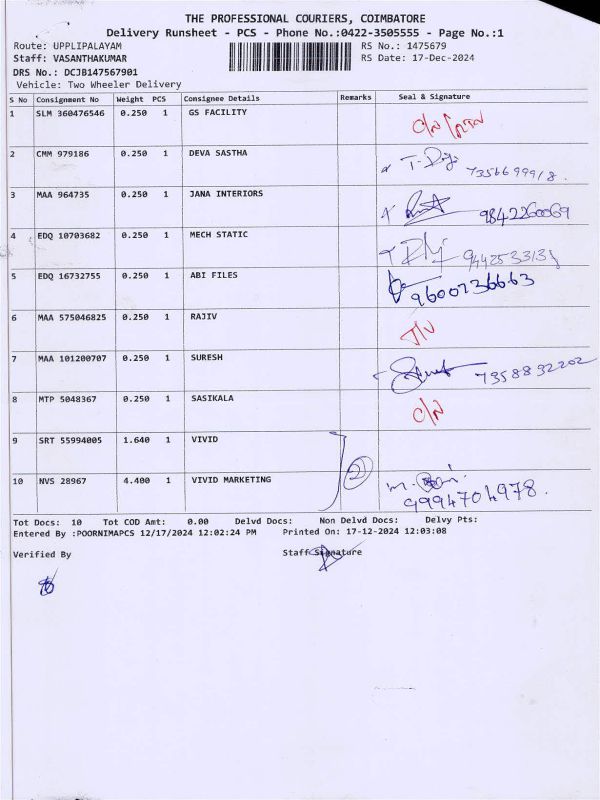 THE PROFESSIONAL COURIERS, COIMBATORE
Delivery Runsheet - PCS - Phone No.:0422-3505555 - Page No.:1
Route: UPPLIPALAYAM RS No.: 1475679
Staff: VASANTHAKUMAR RS Date: 17-Dec-2024
DRS No.: DCJB147567901
Vehicle: Two Wheeler Delivery
S No Consignment No Weight PCS Consignee Details Remarks Seal & Signature
1 SLM 360476546 0.250 1 GS FACILITY
2 CMM 979186 0.250 1 DEVA SASTHA 7356699918.
3 MAA 964735 0.250 1 JANA INTERIORS 9842260069
4 EDQ 10703682 0.250 1 MECH STATIC 9442533138
5 EDQ 16732755 0.250 1 ABI FILES 9600736663
6 MAA 575046825 0.250 1 RAJIV
7 MAA 101200707 0.250 1 SURESH 7358832202
8 MTP 5048367 0.250 1 SASIKALA
9 SRT 55994005 1.640 1 VIVID
2
10 NVS 28967 4.400 1 VIVID MARKETING 9994704978.
Tot Docs: 10 Tot COD Amt: 0.00 Delvd Docs: Non Delvd Docs: Delvy Pts:
Entered By :POORNIMAPCS 12/17/2024 12:02:24 PM Printed On: 17-12-2024 12:03:08
Verified By Staff Signature